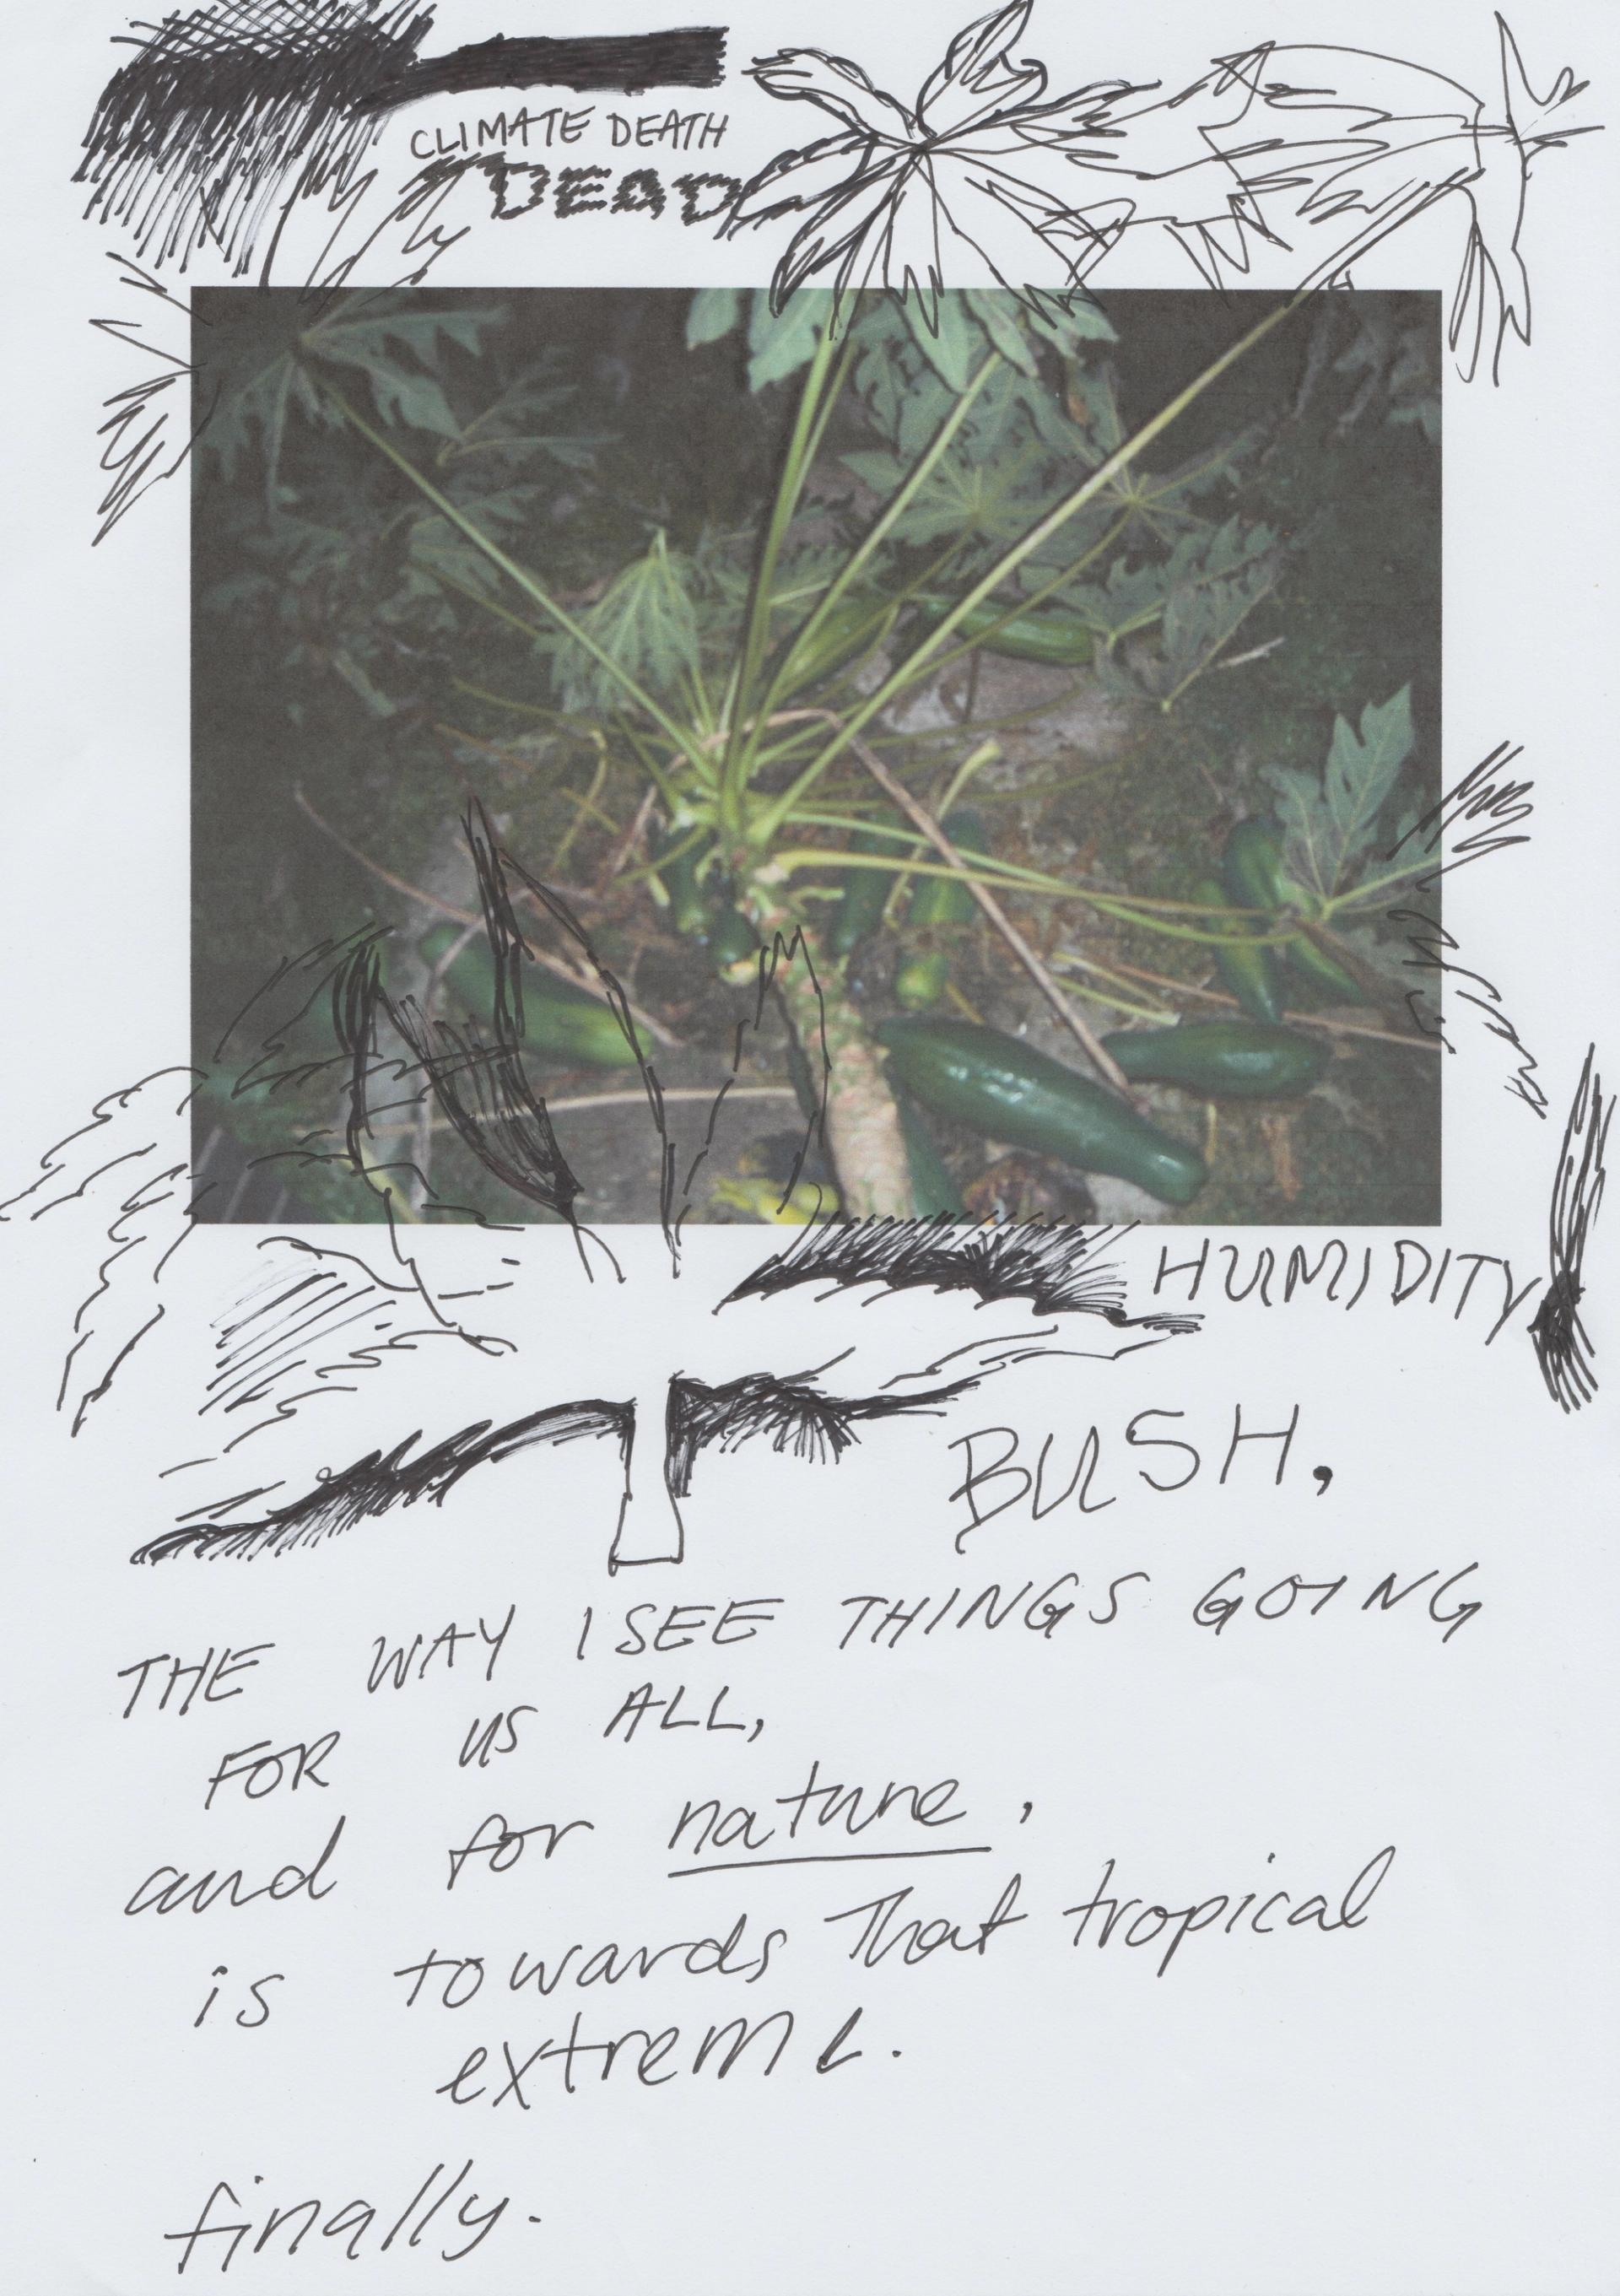 CLIMATE DEATH
DEAD
HUMIDITY
BUSH,
THE WAY I SEE THINGS GOING
FOR US ALL,
and for nature,
is towards That tropical
extreme.
finally.